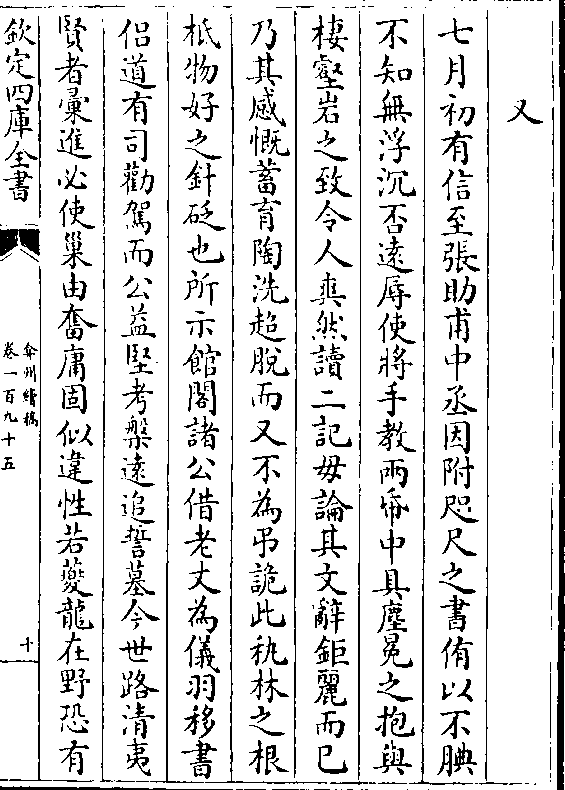 又
七月初有信至張助甫中丞因附咫尺之書侑以不腆
不知無浮沉否遠辱使將手教兩帋中具塵冕之抱與
棲壑岩之致令人爽然讀二記毋論其文辭鉅麗而已
乃其感慨蓄育陶洗超脫而又不為弔詭此秇林之根
柢物好之針砭也所示館閣諸公借老丈為儀羽移書
侣道有司勸駕而公益堅考槃遠追誓墓今世路清夷
賢者彚進必使巢由奮庸固似違性若夔龍在野恐有
欽定四庫全書
弇州續稿
卷一百九十五
十